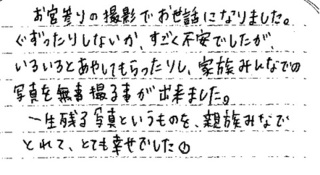 お宮参りの撮影でお世話になりました。
ぐずったりしないか、すごく不安でしたが、
いろいろとあやしてもらったりし、家族みんなでの
写真を無事撮る事が出来ました。
一生残る写真というものを、親族みなで
とれて、とても幸せでした